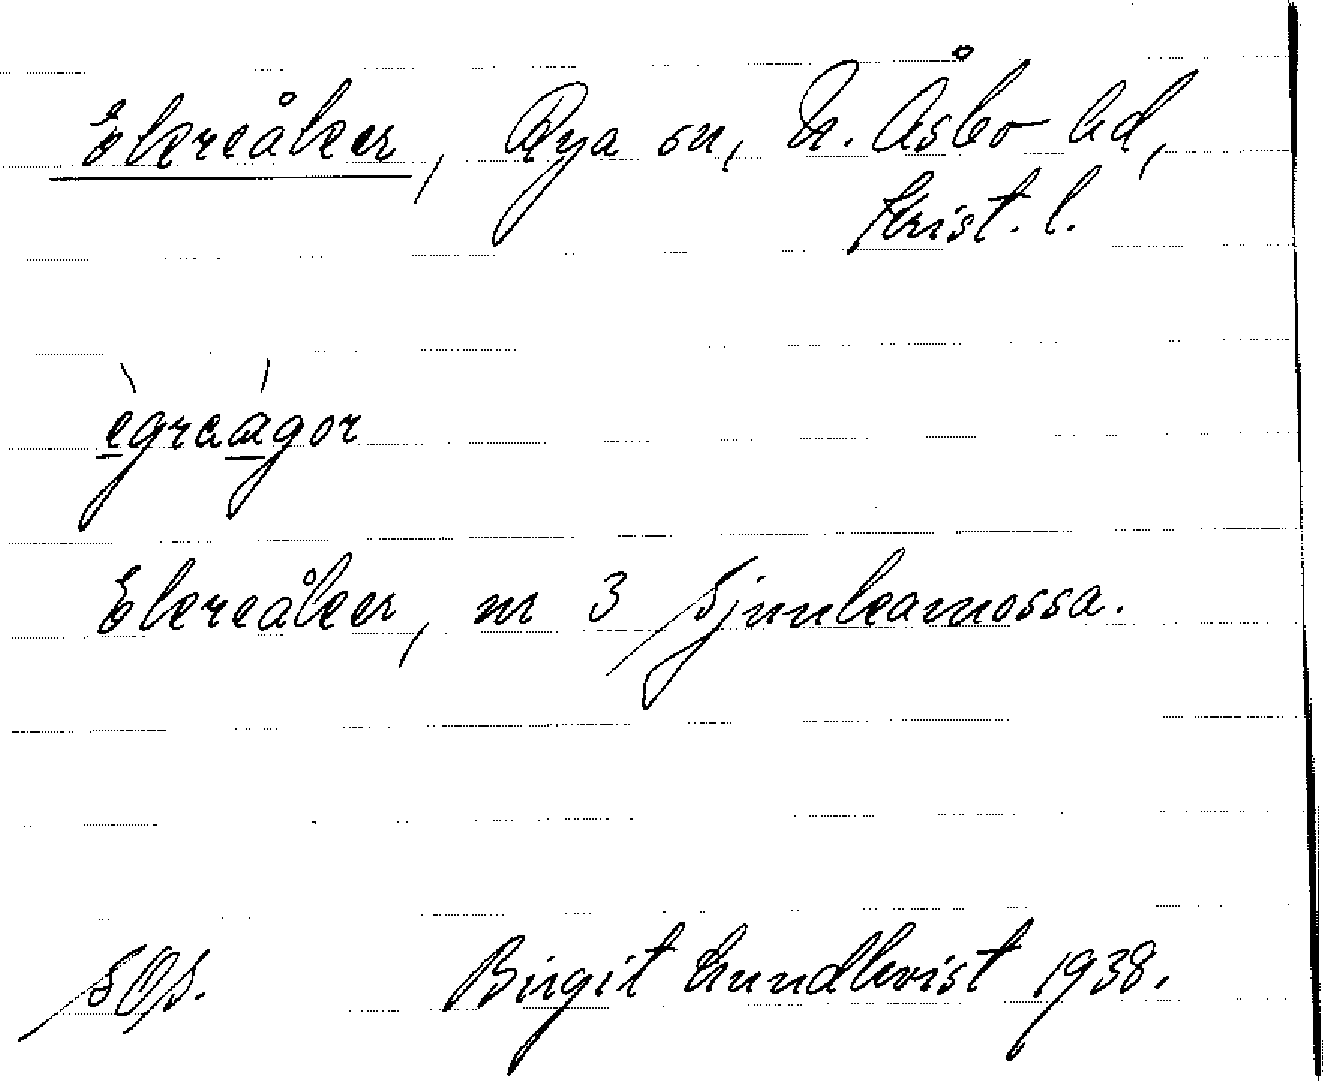 Ekreåker, Rya sn, N. Åsbo hd,
Krist. l.
ègreágor
Ekreåker, nr 3 Sjunkamossa.
SOS. Birgit Lundkvist 1938.